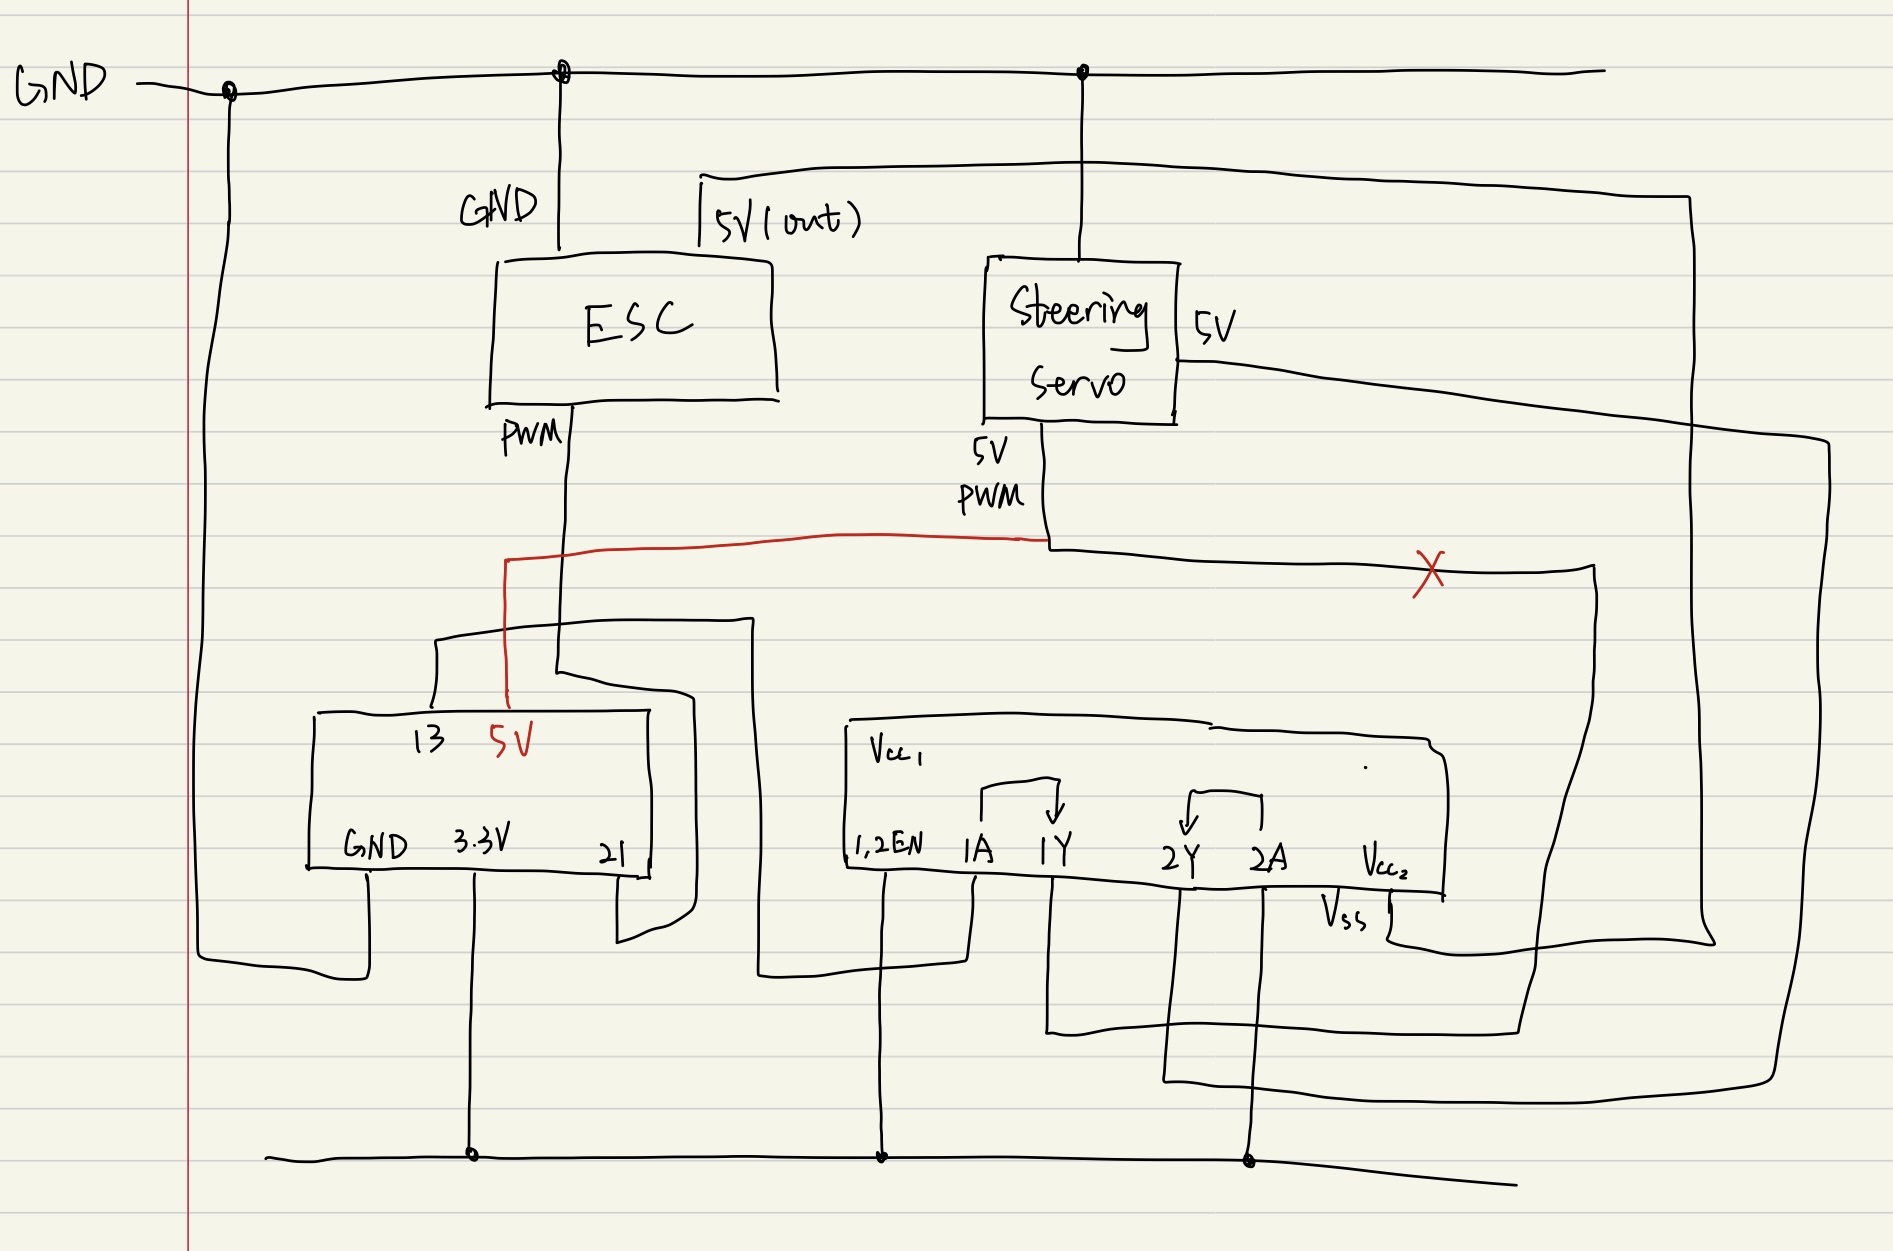 GND
GND
5V (out)
ESC
Steering
Servo
5V
PWM
5V
PWM
13
5V
GND
3.3V
21
Vcc1
1,2EN
1A
1Y
2Y
2A
Vcc2
Vss